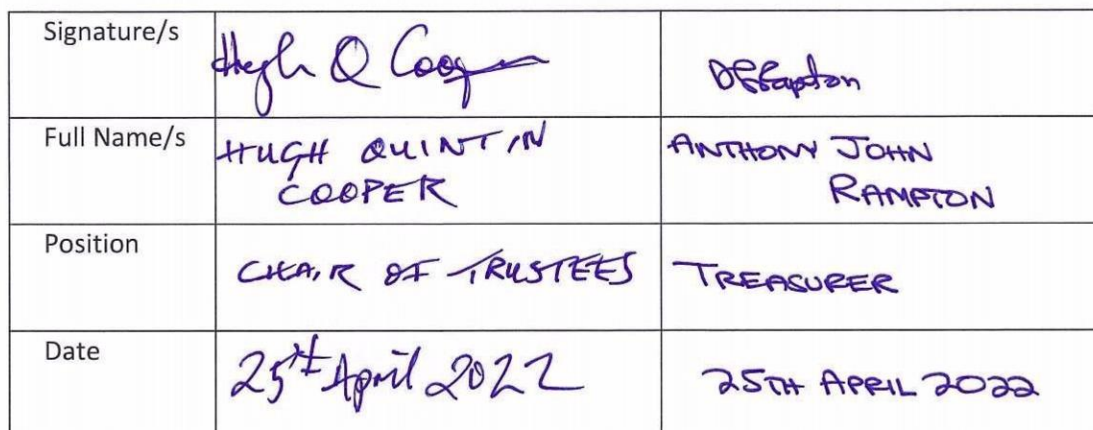 Signature/s Hugh Q Cooper
Full Name/s HUGH QUINTIN ANTHONY JOHN
COOPER RAMPTON
Position CHAIR OF TRUSTEES TREASURER
Date 25th April 2022 25TH APRIL 2022